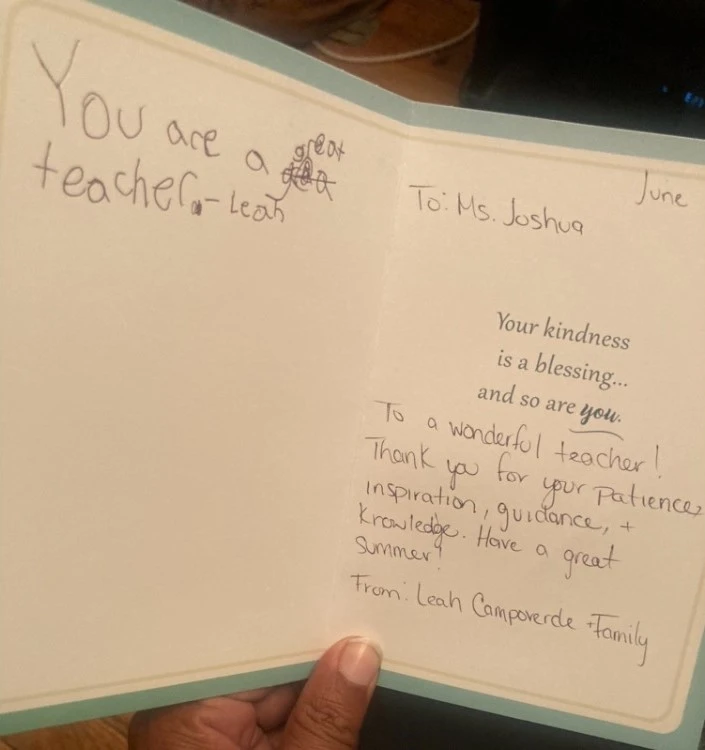 You are a great
teacher. - Leah
June
To: Ms. Joshua
Your kindness
is a blessing...
and so are you.
To a wonderful teacher!
Thank you for your patience,
inspiration, guidance, +
knowledge. Have a great
summer!
From: Leah Campoverde + Family